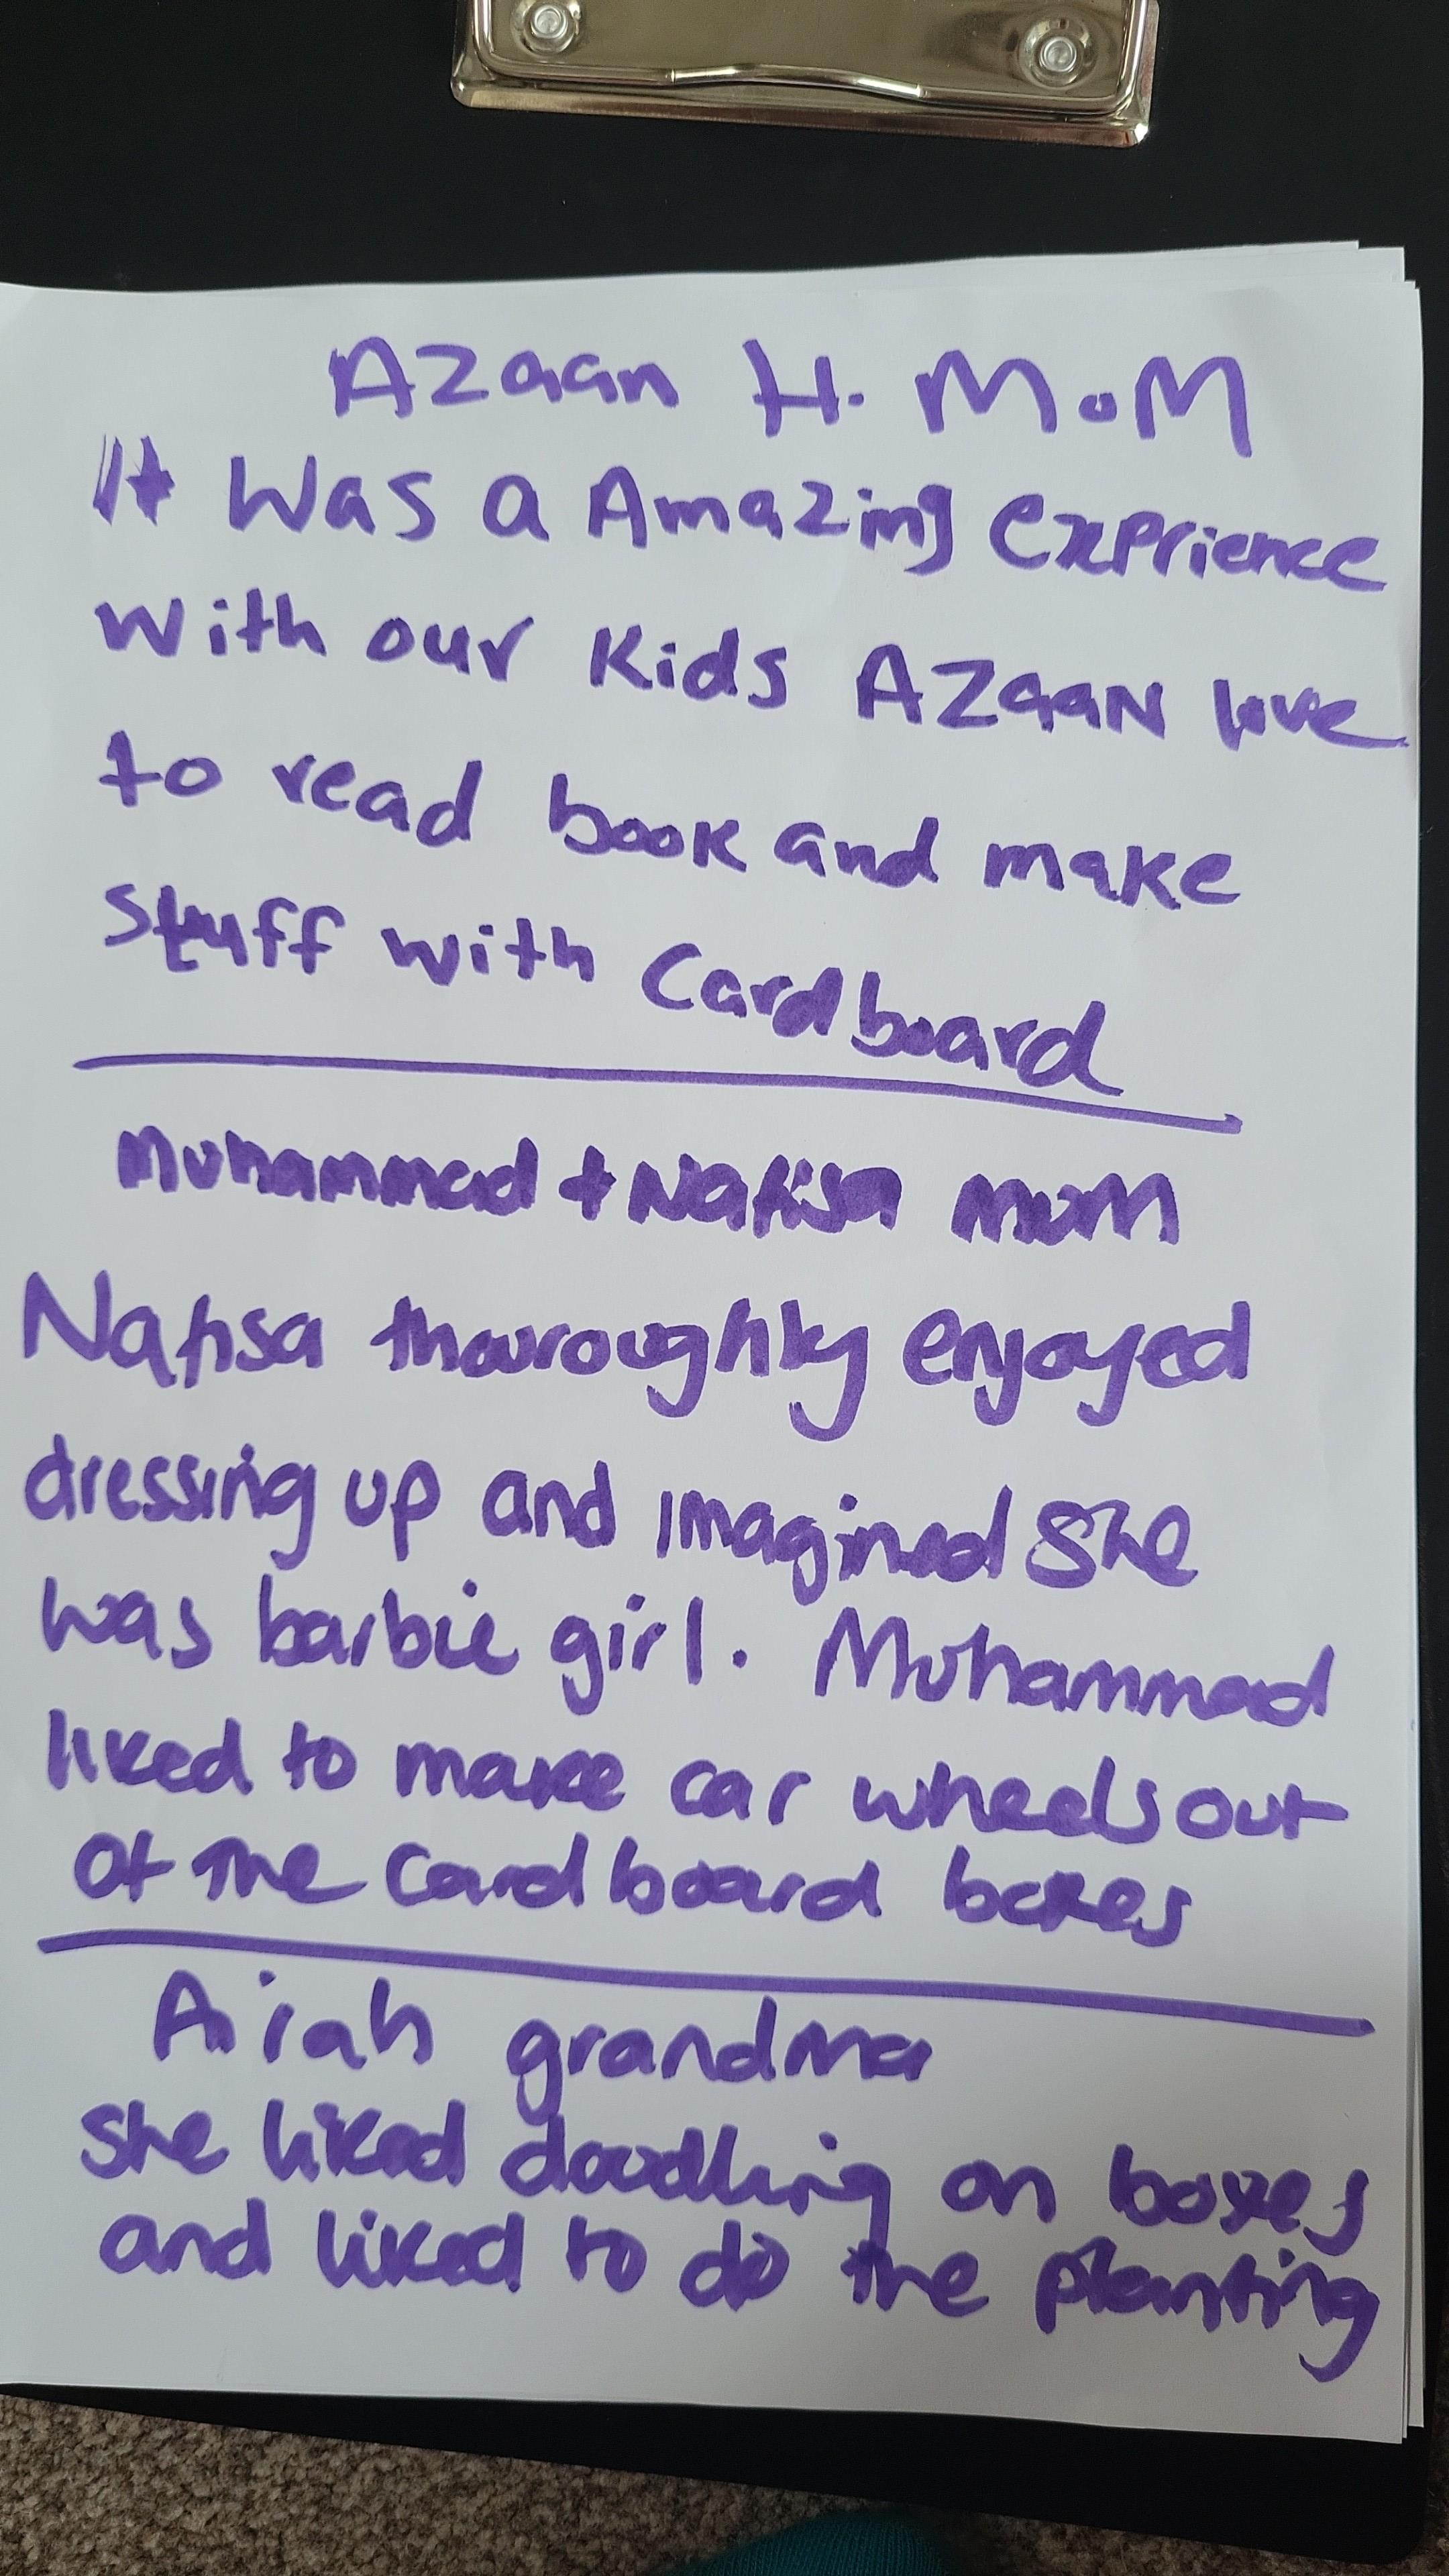 Azaan H. MoM
It Was a Amazing exprience
With our Kids AZaaN love
to read book and make
Stuff with Cardboard
Muhammad + Nafisa mum
Nafisa thouroughly enjoyed
dressing up and imagined She
was barbie girl. Muhammad
liked to make car wheels out
of the Cardboard boxes
Airah grandma
She liked doodling on boxes
and liked to do the planting